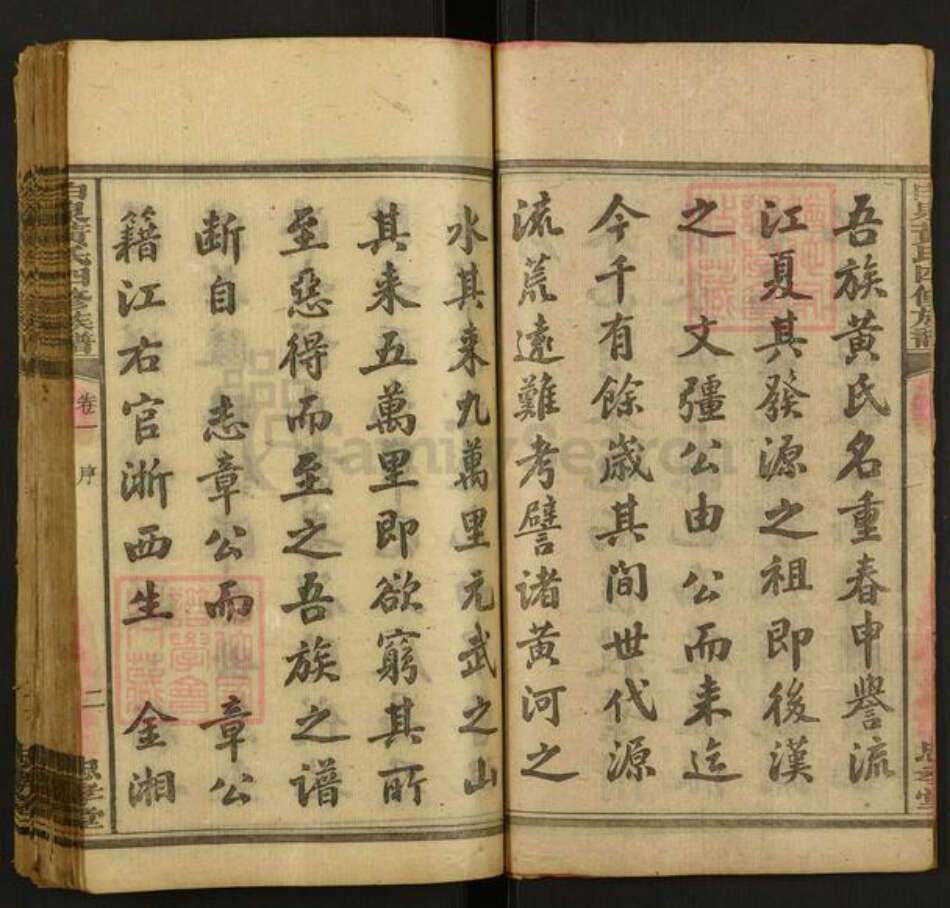 吾族黃氏名重春申譽流
江夏其發源之祖即後漢
之　文彊公由　公而來迄
今千有餘歲其間世代源
流荒遠難考譬諸黃河之
水其來九萬里元武之山
其來五萬里即欲窮其所
至惡得而至之吾族之譜
斷自　志章公而　章公
籍江右官浙西生　金湘
黃氏四修族譜
卷一
序
二
思孝堂
FamilySearch